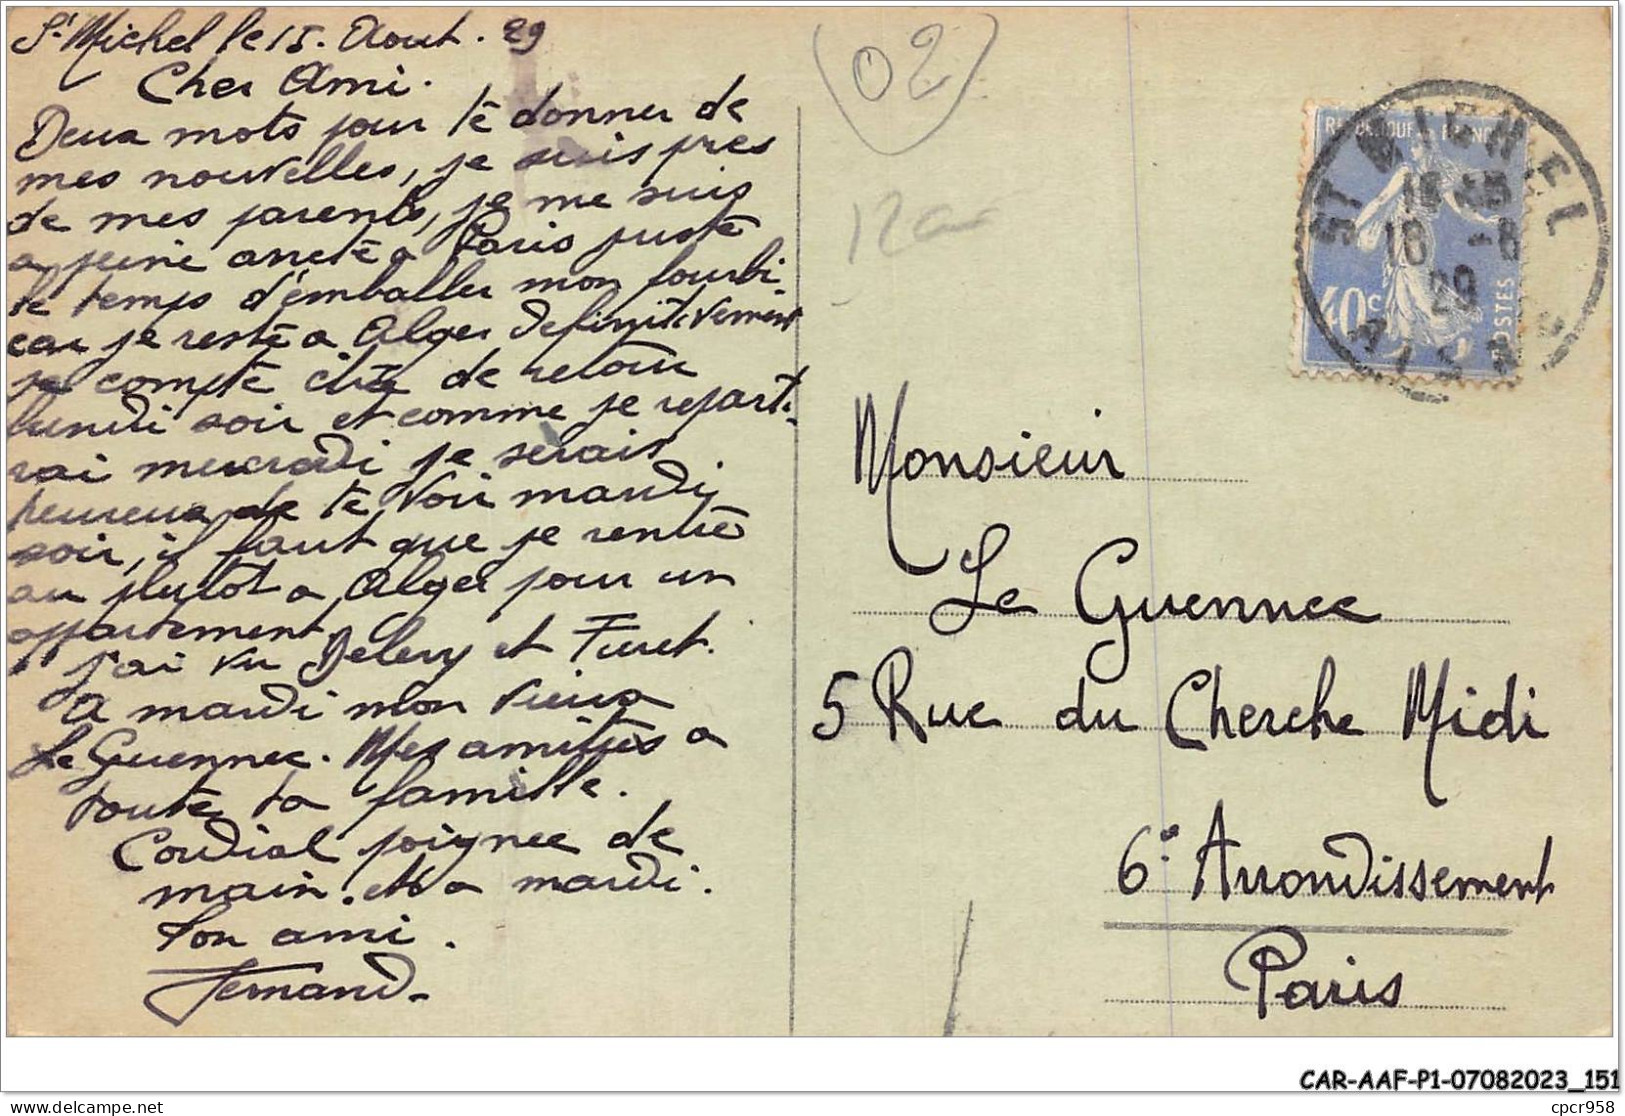 St Michel le 15. Aout. 29
Cher Ami.
Deux mots pour te donner de
mes nouvelles, je suis pres
de mes parents, je me suis
a peine arreté a Paris juste
le temps d'emballer mon fourbi
car je reste a Alger definitivement
je compte être de retour
lundi soir et comme je reparti-
rai mercredi je serais
heureux de te voir mardi
soir, il faut que je rentre
au plutot a Alger pour un
appartement,
j'ai vu Delery et Furet.
A mardi mon vieux
Le Guennec. Mes amitiés a
toute ta famille.
Cordial poignee de
main. et a mardi.
Ton ami.
Fernand.
02
12
REPUBLIQUE FRANC
40c
POSTES
ST MICHEL
16 -8
29
AISNE
Monsieur
Le Guennec
5 Rue du Cherche Midi
6e Arrondissement
Paris
CAR-AAF-P1-07082023_151
https://www.delcampe.net
cpcr958